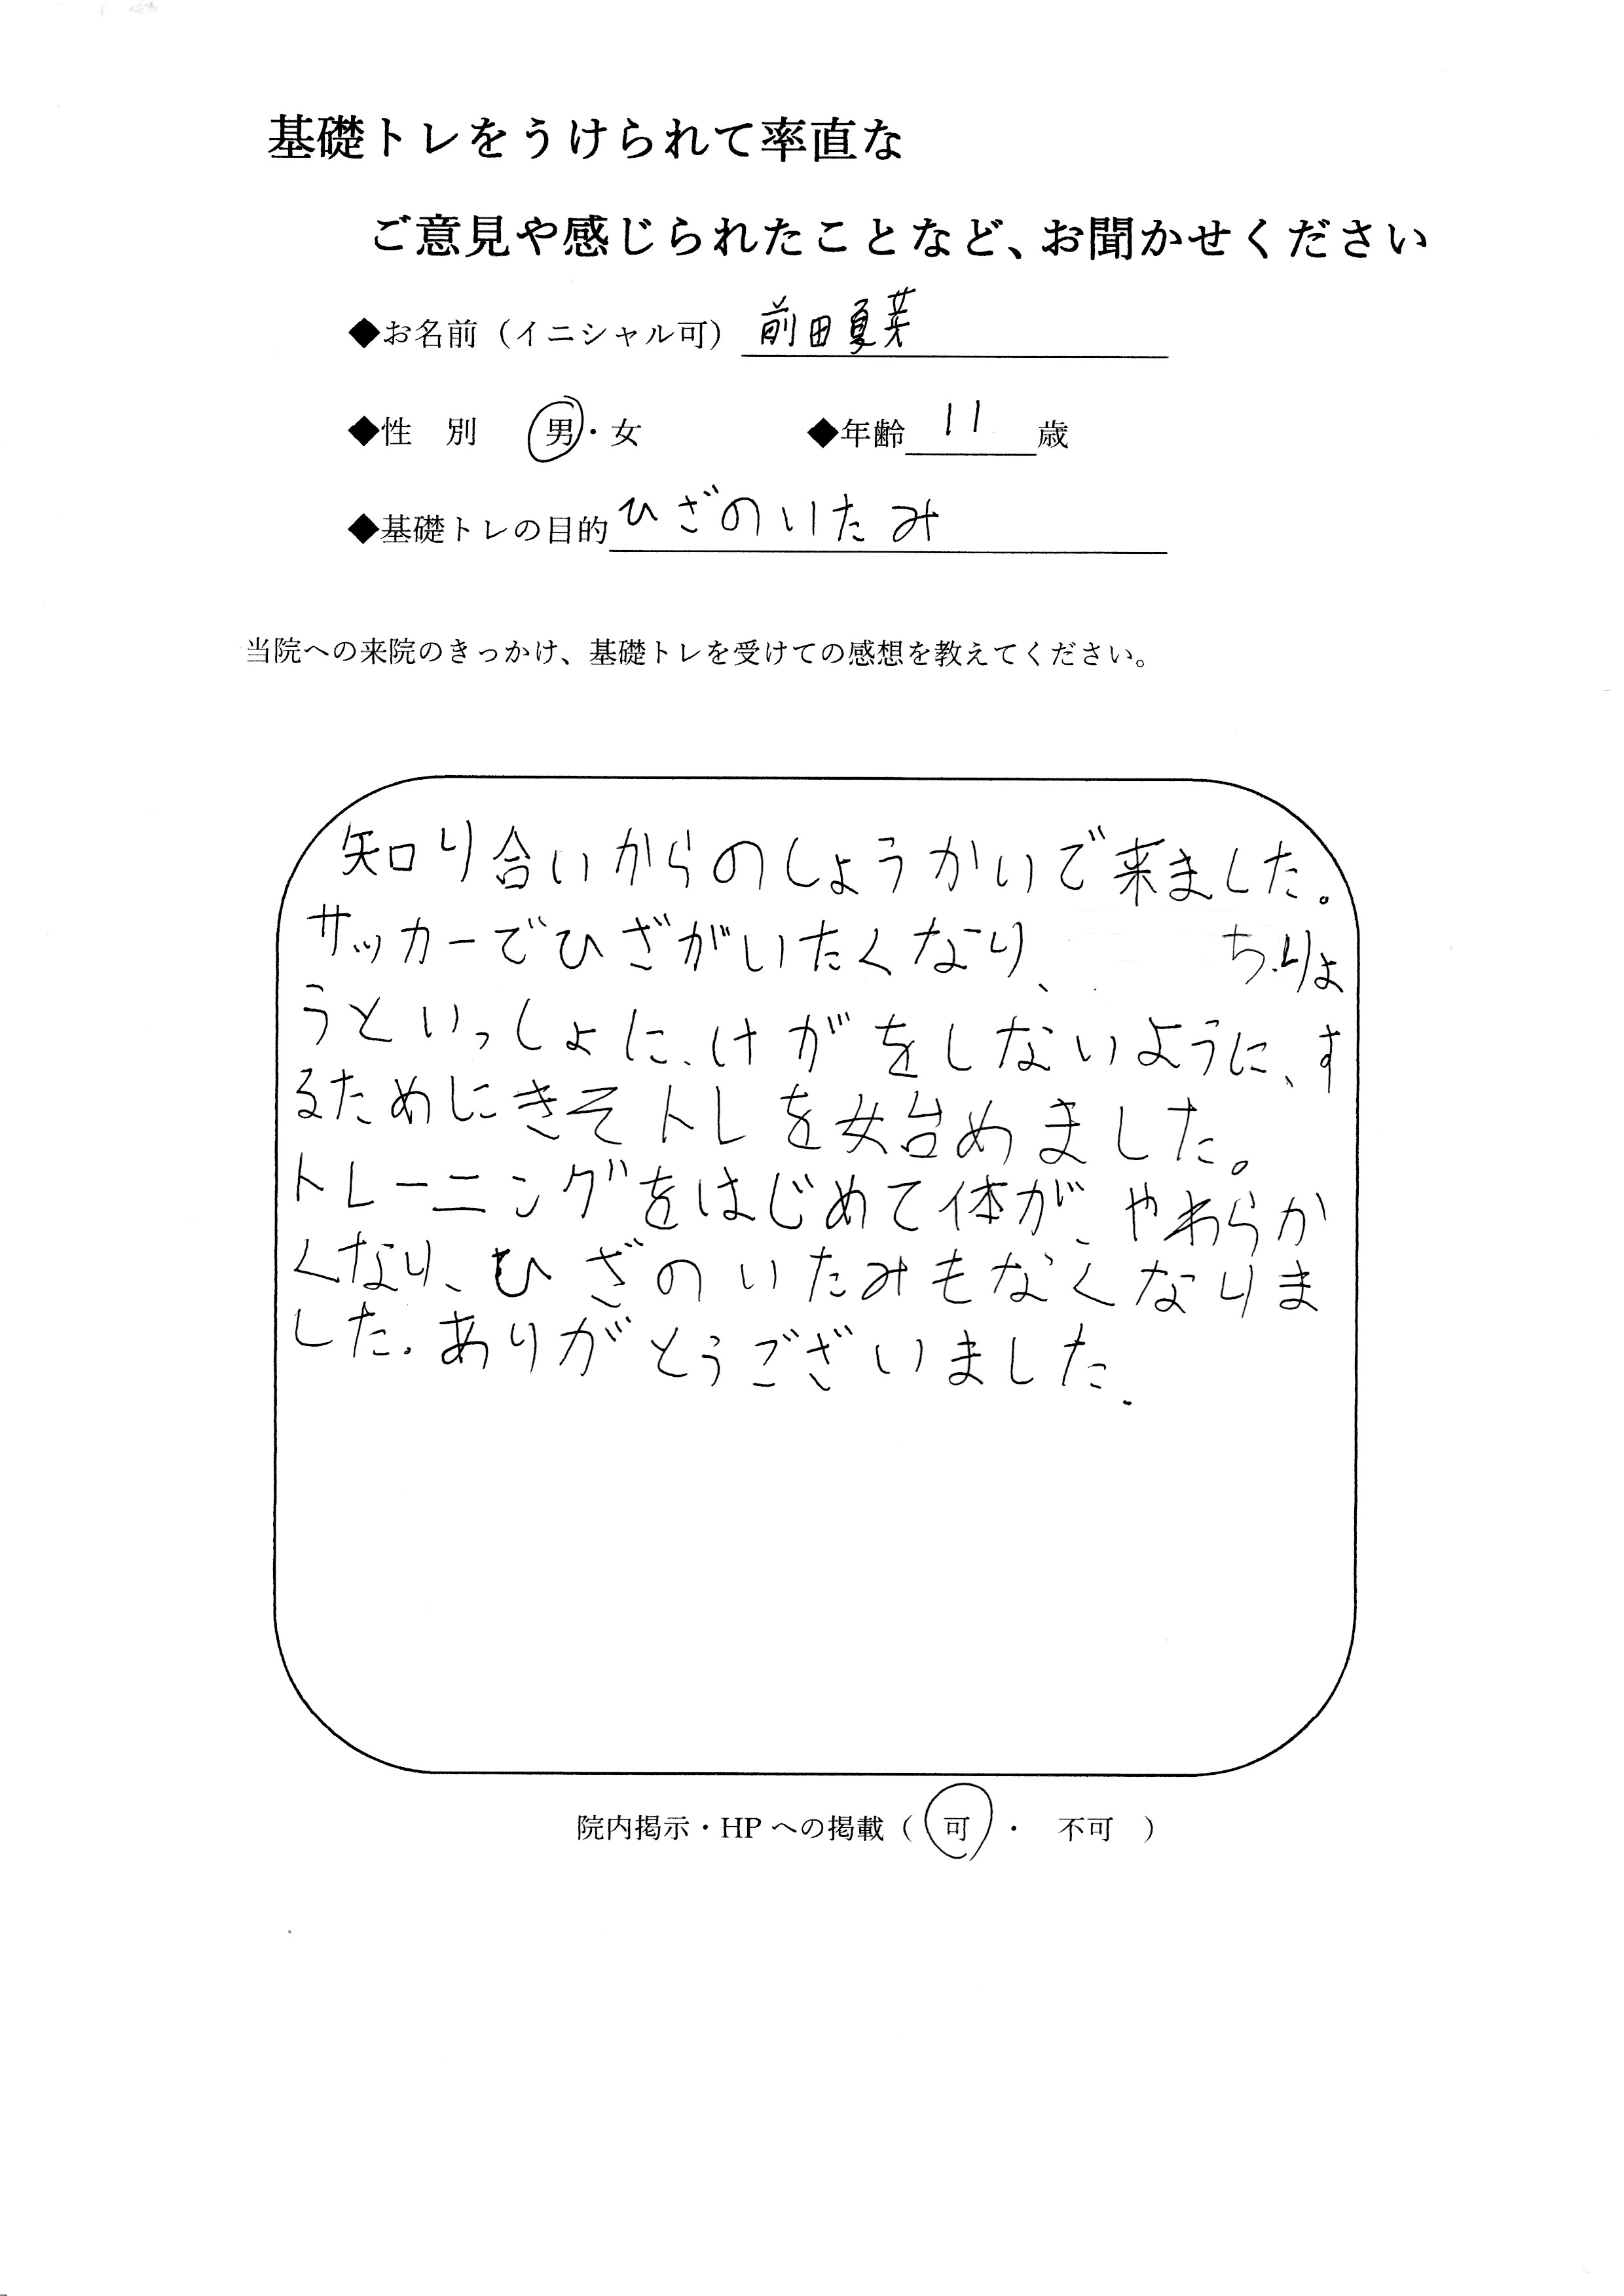 基礎トレをうけられて率直な
ご意見や感じられたことなど、お聞かせください
◆お名前（イニシャル可） 前田夏芽
◆性　別　男・女　◆年齢 11 歳
◆基礎トレの目的 ひざのいたみ
当院への来院のきっかけ、基礎トレを受けての感想を教えてください。
知り合いからのしょうかいで来ました。
サッカーでひざがいたくなり、　ちりょ
うといっしょに、けがをしないように、す
るためにきそトレを始めました。
トレーニングをはじめて体が、やわらか
くなり、ひざのいたみもなくなりま
した。ありがとうございました.
院内掲示・HP への掲載（ 可 ・ 不可 ）